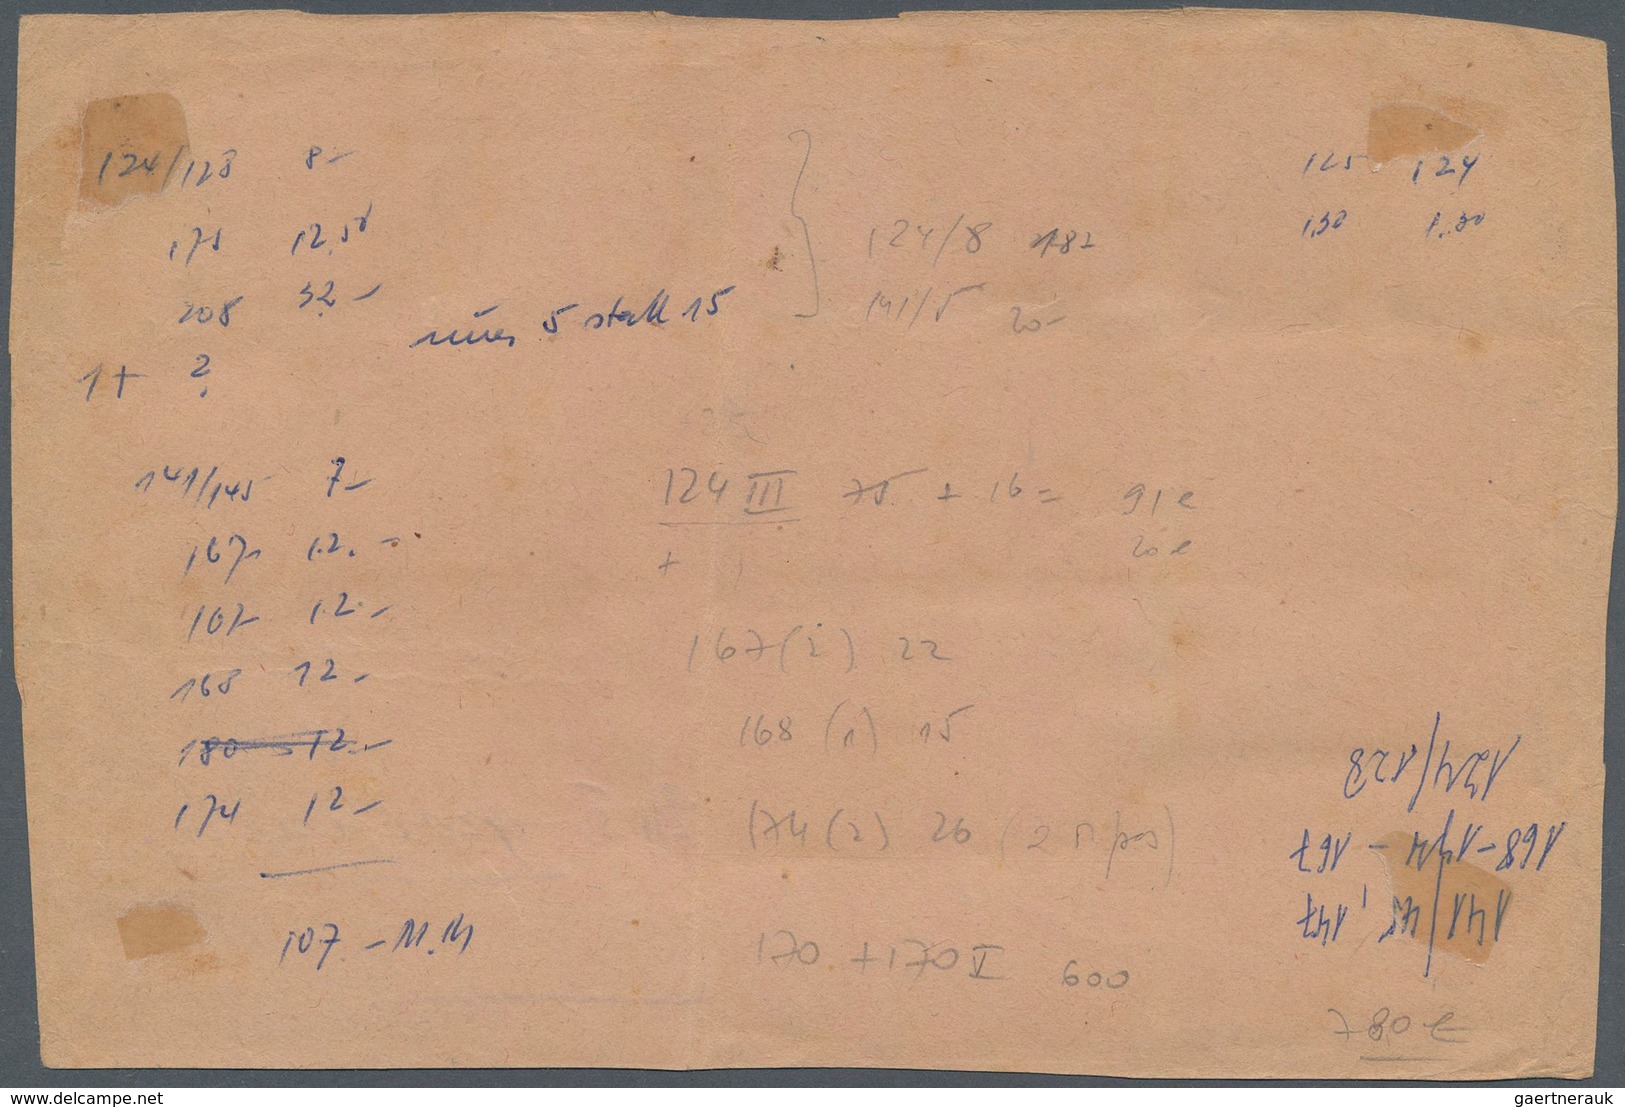 124/128 8-
175 12,50
208 32-
1+ ?
5 statt 15
124/8 18-
141/5 20-
125 124
1.30 1.30
141/145 7-
167 12.-
167 12.-
168 12.-
180 12.-
174 12-
107.- M.M
124 III 75 + 16 = 91 €
+ 20 €
167 (2) 22
168 (1) 15
174 (2) 26
170 + 170 V 600
124/128
168-174-167
141/45, 147
780 €
delcampe.net
gaertnerauk